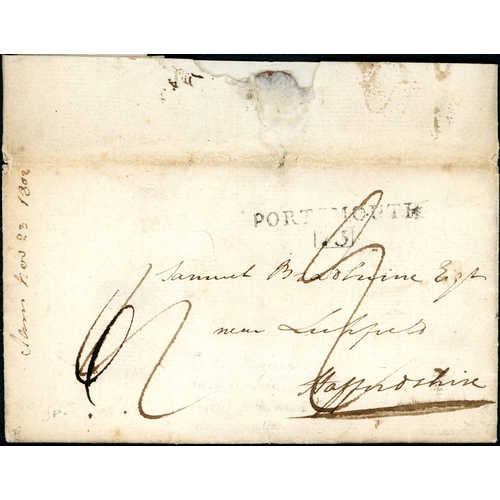 PORTSMOUTH
73
Samuel Bradburne Esqr
near Lichfield
Staffordshire
Nov 23 1802